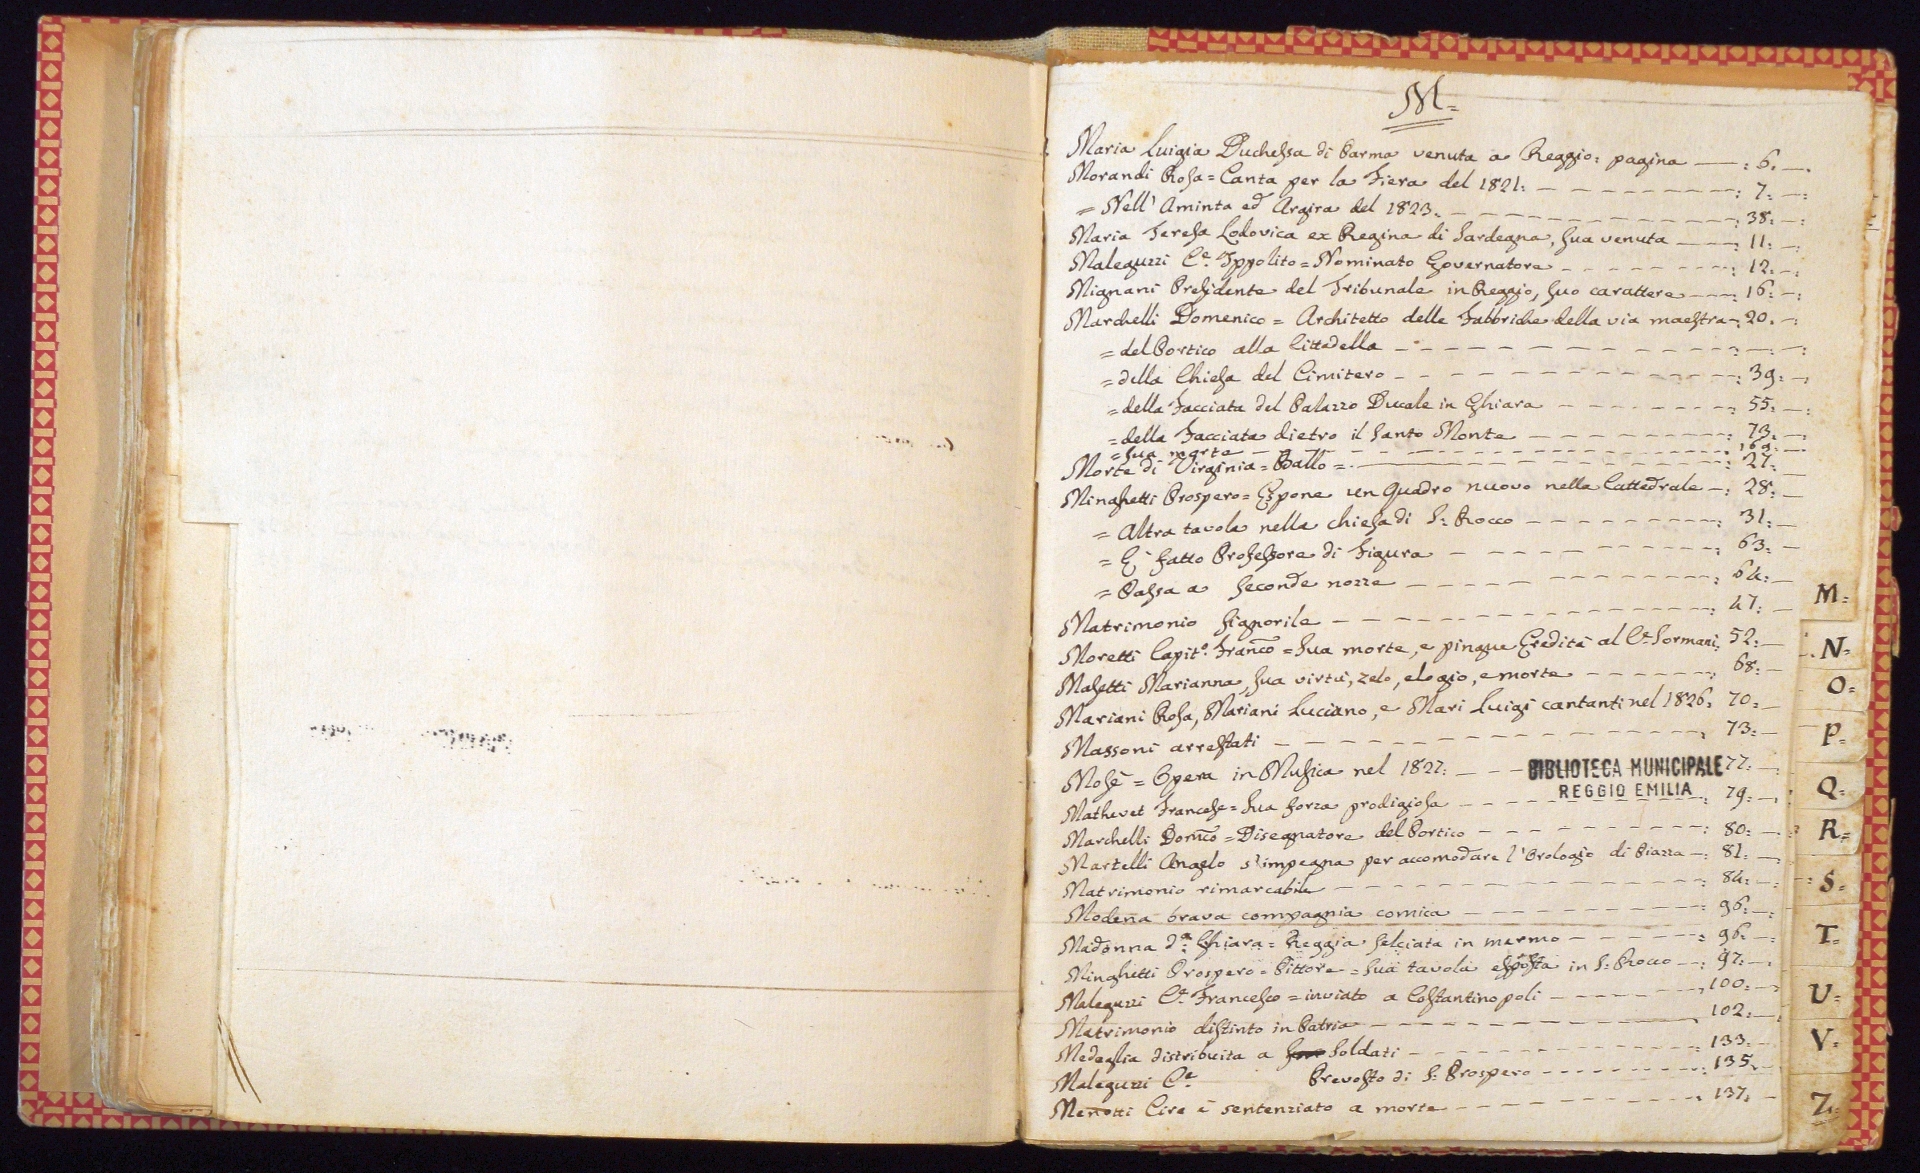 M=
Maria Luigia Duchessa di Parma venuta a Reggio: pagina — : 6: —
Morandi Rosa = Canta per la Fiera del 1821: — : 7: —
= Nell' Aminta ed Argira del 1823. — : 38: —
Maria Teresa Lodovica ex Regina di Sardegna, sua venuta — : 11: —
Maleguzzi C.e Ippolito = Nominato Governatore — : 12: —
Mignani Presidente del Tribunale in Reggio, suo carattere — : 16: —
Marchelli Domenico = Architetto delle Fabbriche della via maestra -: 20: —
= del Portico alla Cittadella — : — :
= della Chiesa del Cimitero — : 39: —
= della Facciata del Palazzo Ducale in Ghiara — : 55: —
= della Facciata dietro il Santo Monte — : 73: —
= sua morte — : 169: —
Morte di Virginia = Ballo = . — : 27: —
Minghetti Prospero = Espone un Quadro nuovo nella Cattedrale — : 28: —
= Altra tavola nella chiesa di S: Rocco — : 31: —
= E' fatto Professore di Figura — : 63: —
= Passa a seconde nozze — : 64: —
Matrimonio signorile — : 47: —
Moretti Capit.o Fran.co = Sua morte, e pingue Eredità al C.e Sormani: 52: —
Masetti Marianna, sua virtù, zelo, elogio, e morte — : 68: —
Mariani Rosa, Mariani Luciano, e Mari Luigi cantanti nel 1826: 70: —
Massoni arrestati — : 73: —
Mosè = Opera in Musica nel 1827: — 77: —
BIBLIOTECA MUNICIPALE
REGGIO EMILIA
Mathevet Francese = Sua forza prodigiosa — : 79: —
Marchelli Dom.co = Disegnatore del Portico — : 80: —
Martelli Angelo s'impegna per accomodare l'Orologio di Piazza — : 81: —
Matrimonio rimarcabile — : 84: —
Modena brava compagnia comica — : 96: —
Madonna d.a Ghiara = Reggia selciata in marmo — : 96: —
Minghetti Prospero = Pittore = Sua tavola esposta in S: Rocco — : 97: —
Maleguzzi C.e Francesco = inviato a Costantinopoli — : 100: —
Matrimonio distinto in Patria — : 102: —
Medaglia distribuita a Soldati — : 133: —
Maleguzzi C.e Prevosto di S: Prospero — : 135: —
Menotti Ciro è sentenziato a morte — : 137: —
M=
N=
O=
P=
Q=
R=
S=
T=
U=
V=
Z=